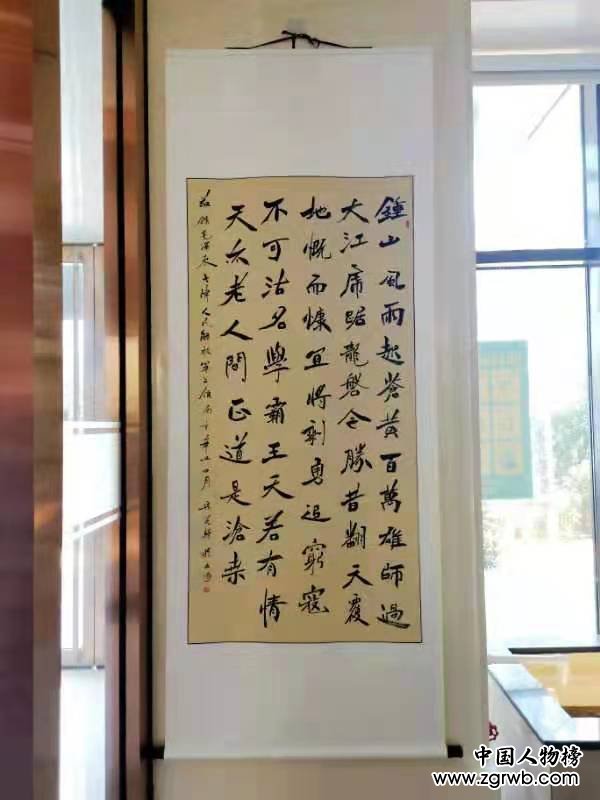 鍾山風雨起蒼黄百萬雄師過
大江虎踞龍盤今勝昔翻天覆
地慨而慷宜將剩勇追窮寇
不可沽名學霸王天若有情
天亦老人間正道是滄桑
七律人民解放軍占領南京
中国人物榜
www.zgrwb.com